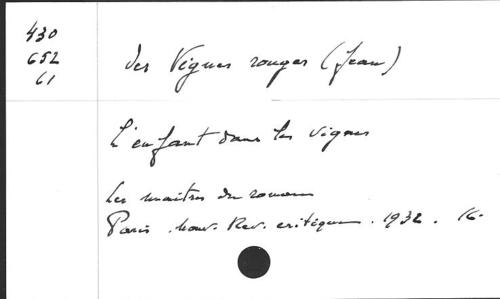 430
652
61
des Vignes rouges (Jean)
L'enfant dans les vignes
Les maitres du roman
Paris. Nouv. Rev. critique. 1932. 16.